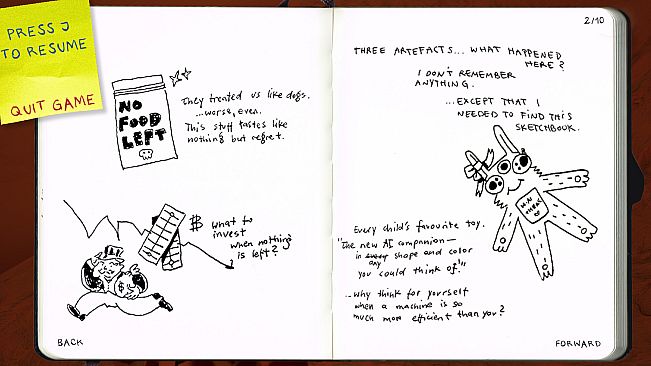 PRESS J
TO RESUME
QUIT GAME
NO
FOOD
LEFT
They treated us like dogs.
...worse, even.
This stuff tastes like
nothing but regret.
$
$ what to
invest
when nothing
is left?
BACK
2/10
THREE ARTEFACTS... WHAT HAPPENED
HERE?
I DON'T REMEMBER
ANYTHING.
...EXCEPT THAT I
NEEDED TO FIND THIS
SKETCHBOOK.
Every child's favourite toy.
"The new AI companion—
in every any shape and color
you could think of!"
...why think for yourself
when a machine is so
much more efficient than you?
FORWARD